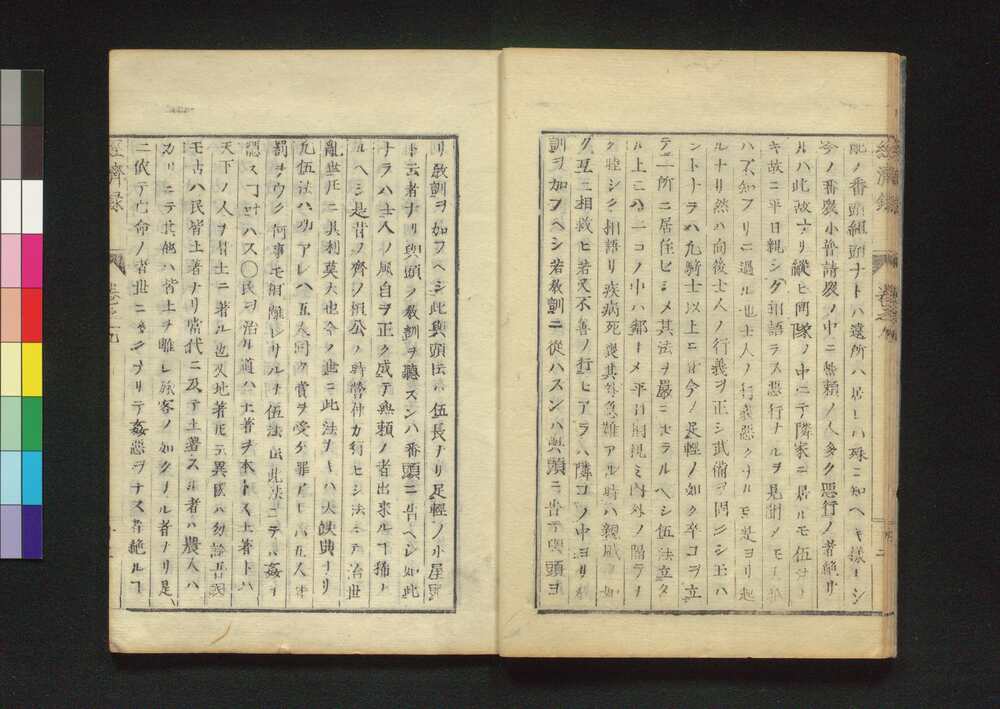 配ノ番頭組頭ナトハ遠所ハ居レハ殊ニ知ヘキ様ナシ
今ノ番衆小普請衆ノ中ニ無頼ノ人多ク悪行ノ者絶サ
ルハ此故ナリ縦ヒ同隊ノ中ニテ隣家ニ居ルモ伍法ナ
キ故ニ平日親シク相語ラス悪行ナルヲ見聞シモ
ハ不知フリニ過ル也士人ノ行義悪クナルモ是ヨリ起
ルナリ然ハ向後士人ノ行義ヲ正シ武備ヲ固シ玉ハ
ントナラハ九騎士以上ニモ今ノ足軽ノ如ク卒コヲ立
テ一所ニ居住セシメ其法ヲ厳ニセラルヘシ伍法立タ
ル上ニハ一コノ中ハ都テメ平日同視ミ内外ノ隔ナ
ク睦シク相語リ疾病死喪其外急難アル時ハ親戚ノ如
ク互ニ相救ヒ若又不善ノ行ヒアラハ隣コノ中ヨリ教
訓ヲ加フヘシ若教訓ニ從ハスンハ與頭ニ告テ與頭ヨ
經濟録
卷之九
リ教訓ヲ加フヘシ此與頭ハ伍長ナリ足軽ノ小屋頭
ト云者ナリ與頭ノ教訓ヲ聽スンハ番頭ニ告ヘシ如此
ナラハ士人ノ風自ヲ正ク成テ無頼ノ者出来ルコ稀ナ
ルヘシ是昔ノ齊ノ桓公ノ時管仲カ行セシ法ニテ治世
亂世ニ其利莫大也今ノ世ニ此法ナキハ大缺典ナリ
九伍法ハ功アレハ五人同ク賞ヲ受ケ罪アレハ五人同
罰ヲウク何事モ相離レサルナ伍法也此法ニテハ姦ヲ
隱スコ叶ハス〇民ヲ治ル道ハ土著ヲ本トス土著トハ
天下ノ人ヲ皆土ニ著ル也又地著モテ異國ハ勿論吾國
モ古ハ民皆土著ナリ當代ニ及テ土著スル者ハ農人ハ
カリニテ其他ハ皆土ヲ離レ旅客ノ如クナル者ナリ是
ニ依テ亡命ノ者世ニ多シサリテ姦惡ヲナス者絶ルコ
經濟録
卷之九